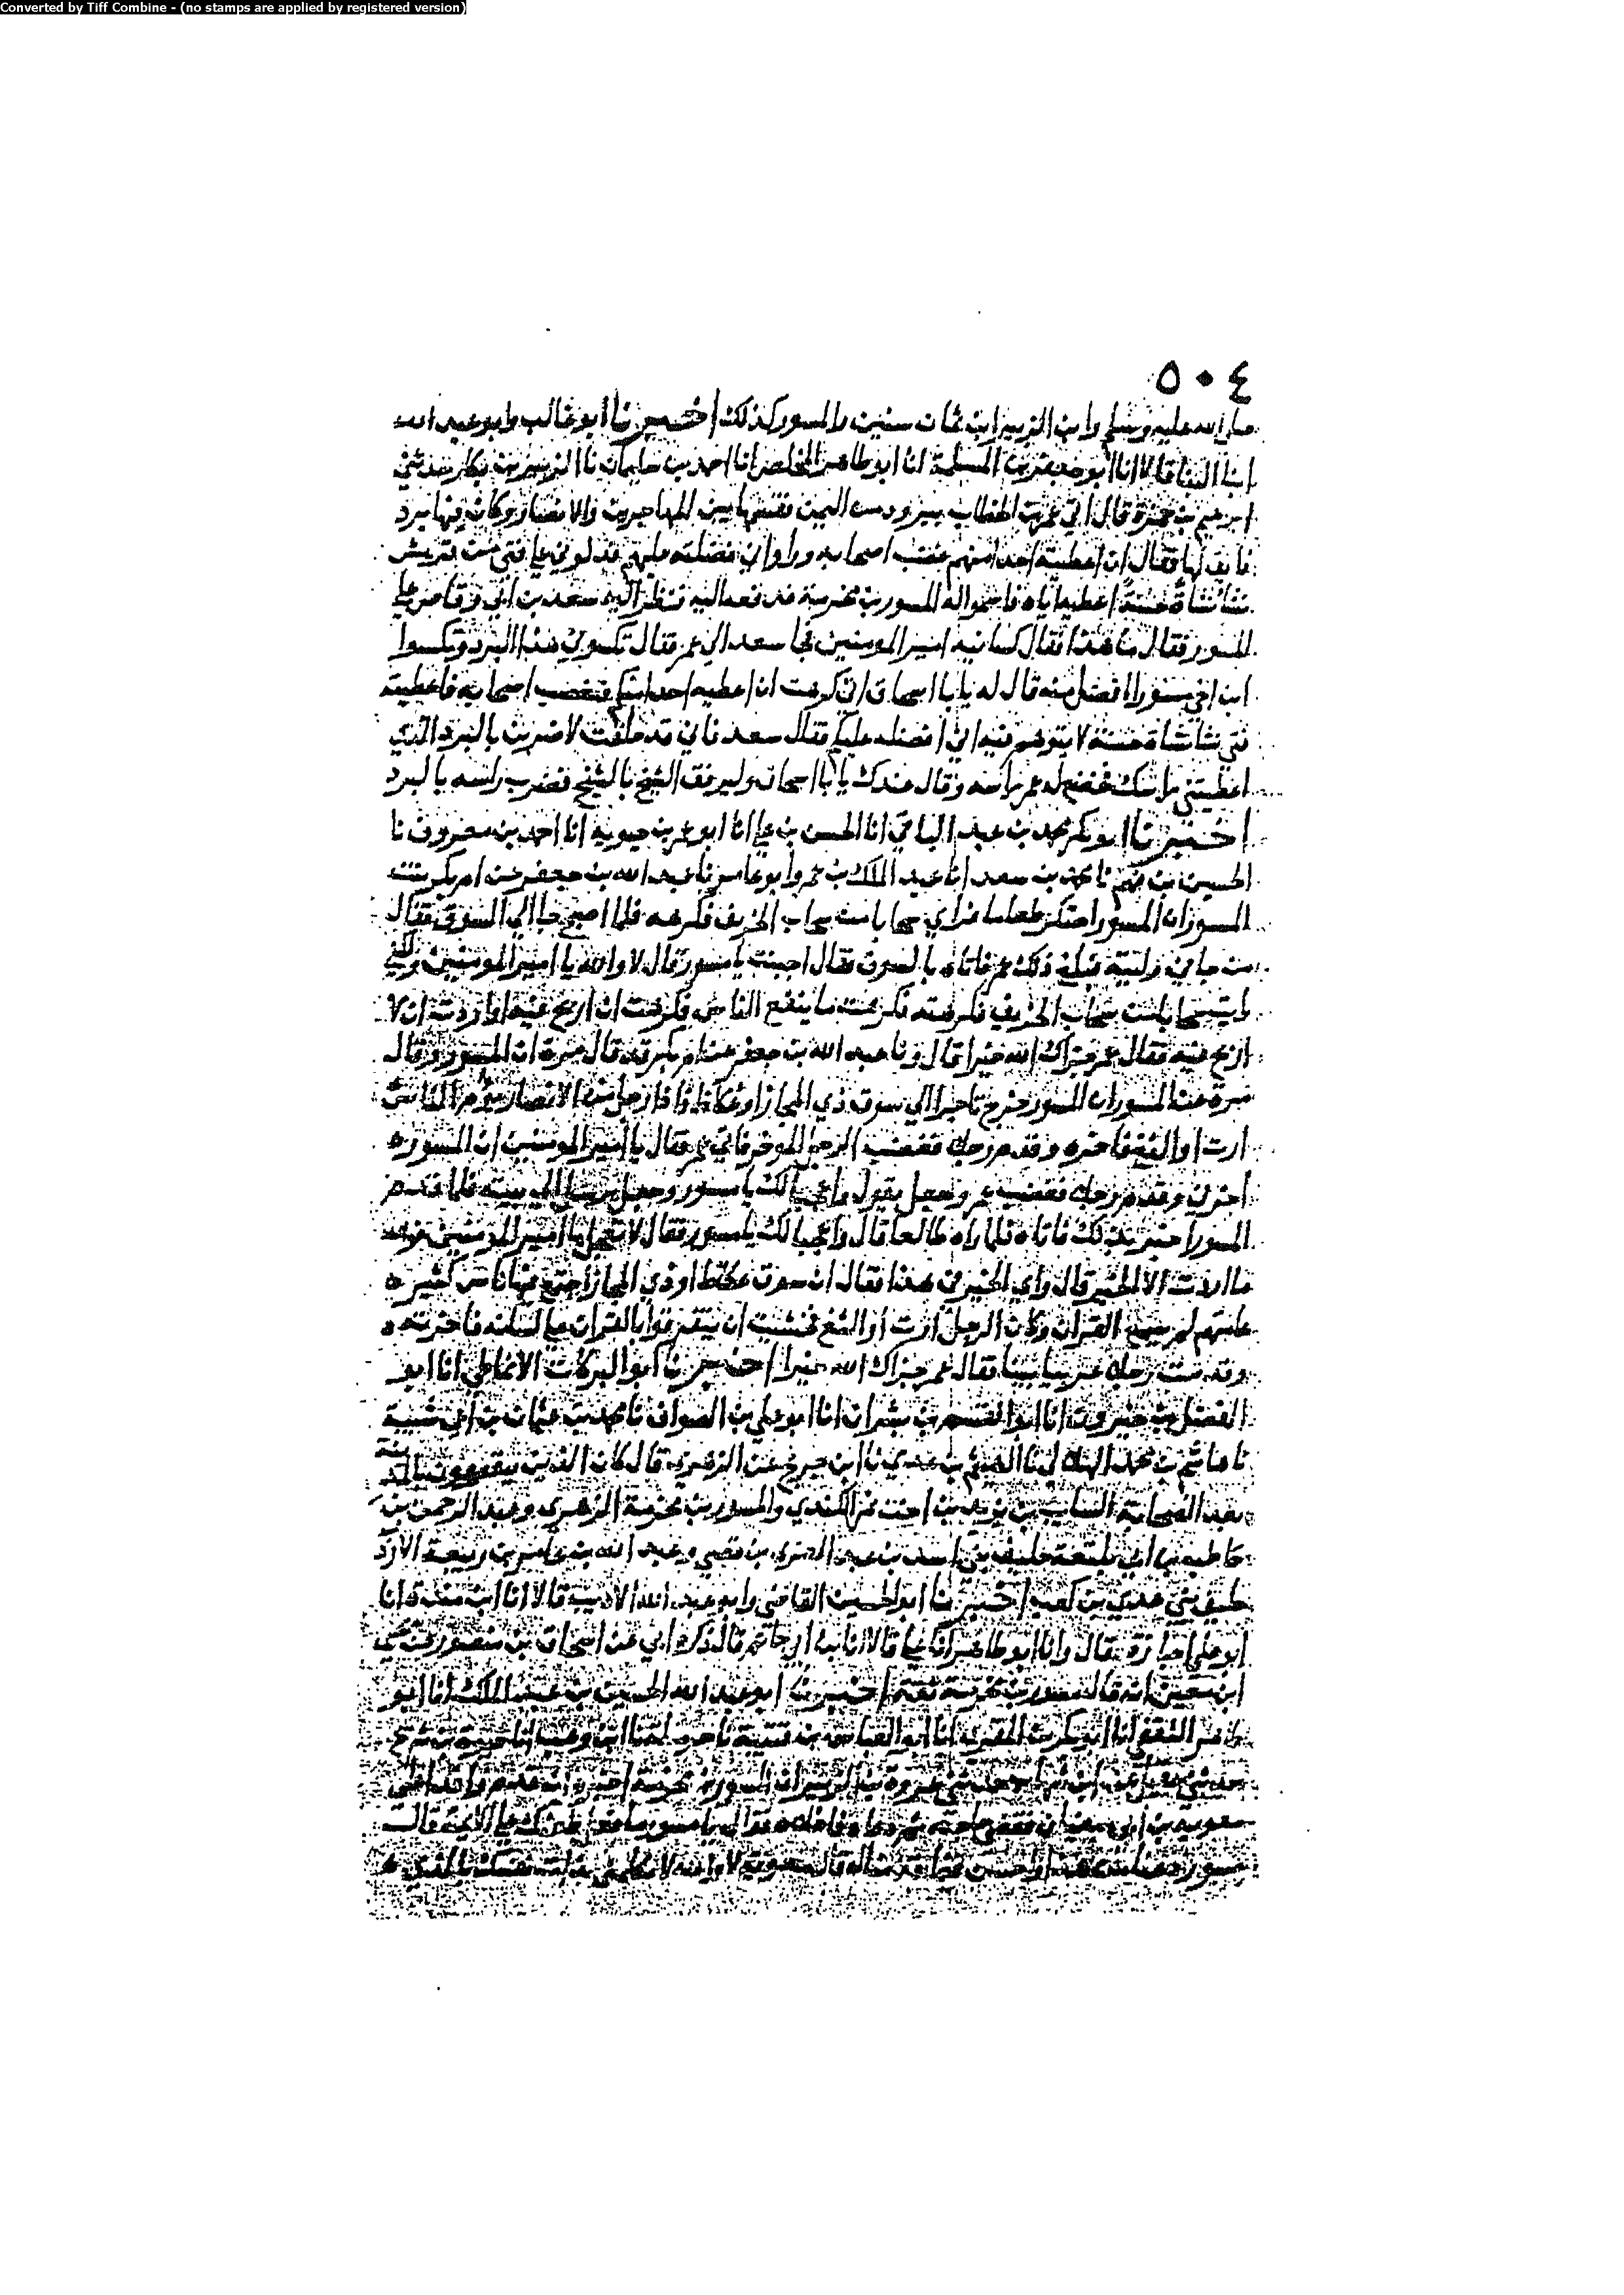 Converted by Tiff Combine - (no stamps are applied by registered version)
٥٠٤
صلى الله عليه وسلم وابن الزبير ابن ثمان سنين والمسور كذلك اخبرنا ابو غالب وابو عبد الله
ابنا البنا قالا انا ابو جعفر بن المسلمة انا ابو طاهر المخلص انا احمد بن سليمان نا الزبير بن بكار حدثني
ابرهيم بن حمزة قال اتي عمر بن الخطاب ببرود من اليمن فقسمها بين المهاجرين والانصار وكان فيها برد
فايق لها فقال ان اعطيته احدا منهم غضب اصحابه وراوا اني فضلته عليهم فدلوني على فتى من قريش
نشا نشاة حسنة اعطيه اياه فاسموا له المسور بن مخرمة فدفعه اليه فنظر اليه سعد بن ابي وقاص على
المسور فقال ما هذا فقال كسانيه امير المومنين فجا سعد الى عمر فقال تكسوني هذا البرد وتكسوا
ابن اخي مسورا افضل منه قال له يا با اسحاق اني كرهت ان اعطيه احدا منكم فيغضب اصحابه فاعطيته
فتى نشا نشاة حسنة لا يتوهم فيه اني افضله عليكم فقال سعد فاني قد حلفت لاضربن بالبرد الذي
اعطيتني راسك فخضع له عمر راسه وقال عندك يا با اسحاق وليرفق الشيخ بالشيخ فضرب راسه بالبرد
اخبرنا ابو بكر محمد بن عبد الباقي انا الحسن بن علي انا ابو عمر بن حيويه انا احمد بن معروف نا
الحسين بن فهم نا محمد بن سعد انا عبد الملك بن عمرو ابو عامر نا عبد الله بن جعفر عن ام بكر بنت
المسور ان المسور احتكر طعاما فراى سحابا من سحاب الخريف فكرهه فلما اصبح جا الى السوق فقال
من جاني وليته فبلغ ذلك عمر فاتاه بالسوق فقال اجننت يا مسور قال لا والله يا امير المومنين ولكني
رايت سحابا من سحاب الخريف فكرهته فكرهت ما ينفع الناس فكرهت ان اربح فيه او اردت ان لا
اربح فيه فقال عمر جزاك الله خيرا قال ونا عبد الله بن جعفر عن ام بكر قال مرة ان المسور وقال
مرة عن المسور ان المسور خرج تاجرا الى سوق ذي المجاز او عكاظ فاذا رجل من الانصار يوم الناس
ارت او الثغ فاخره وقدم رجلا فغضب الرجل الموخر فاتى عمر فقال يا امير المومنين ان المسور
اخرني وقدم رجلا فغضب عمر وجعل يقول واعجبا لك يا مسور وجعل يرسل الى بيته فلما قدم
المسور اخبر بذلك فاتاه فلما راه طالعا قال واعجبا لك يا مسور فقال لا تعجل يا امير المومنين فوالله
ما اردت الا الخير قال واي الخير في هذا فقال ان سوق عكاظ او ذي المجاز اجتمع فيها ناس كثير
عامتهم لم يسمع القران وكان الرجل ارت او الثغ فخشيت ان يتفرقوا بالقران على لسانه فاخرته
وقدمت رجلا عربيا بينا فقال عمر جزاك الله خيرا اخبرنا ابو البركات الانماطي انا ابو
الفضل بن خيرون انا ابو القسم بن بشران انا ابو علي بن الصواف نا محمد بن عثمان بن ابي شيبة
نا هاشم بن محمد الهلالي نا الهيثم بن عدي نا ابن جريج عن الزهري قال كان الذين يتفقهون بالمدينة
بعد الصحابة السايب بن يزيد بن اخت نمر الكندي والمسور بن مخرمة الزهري وعبد الرحمن بن
حاطب بن ابي بلتعة حليف بني اسد بن عبد العزى بن قصي وعبد الله بن عامر بن ربيعة الازد
حليف بني عدي بن كعب اخبرنا ابو الحسين القاضي وابو عبد الله الاديب قالا انا ابن منده انا
ابو علي اجازة قال وانا ابو طاهر انا علي قالا انا ابن ابي حاتم قال ذكره ابي عن اسحاق بن منصور عن يحيى
ابن معين انه قال مسور بن مخرمة ثقة اخبرنا ابو عبد الله الحسين بن عبد الملك انا ابو
طاهر الثقفي انا ابو بكر بن المقري انا ابو العباس بن قتيبة نا حرملة نا ابن وهب انا حيوة بن شريح
حدثني عقيل عن ابن شهاب حدثني عروة بن الزبير ان المسور بن مخرمة اخبره انه قدم وافدا على
معوية بن ابي سفيان فقضى حاجته ثم دعاه فاخلاه فقال يا مسور ما فعل طعنك على الايمة قال
مسور دعنا من هذا واحسن فيما قدمنا له قال معوية لا والله لا تكلمني بذات نفسك بالذي